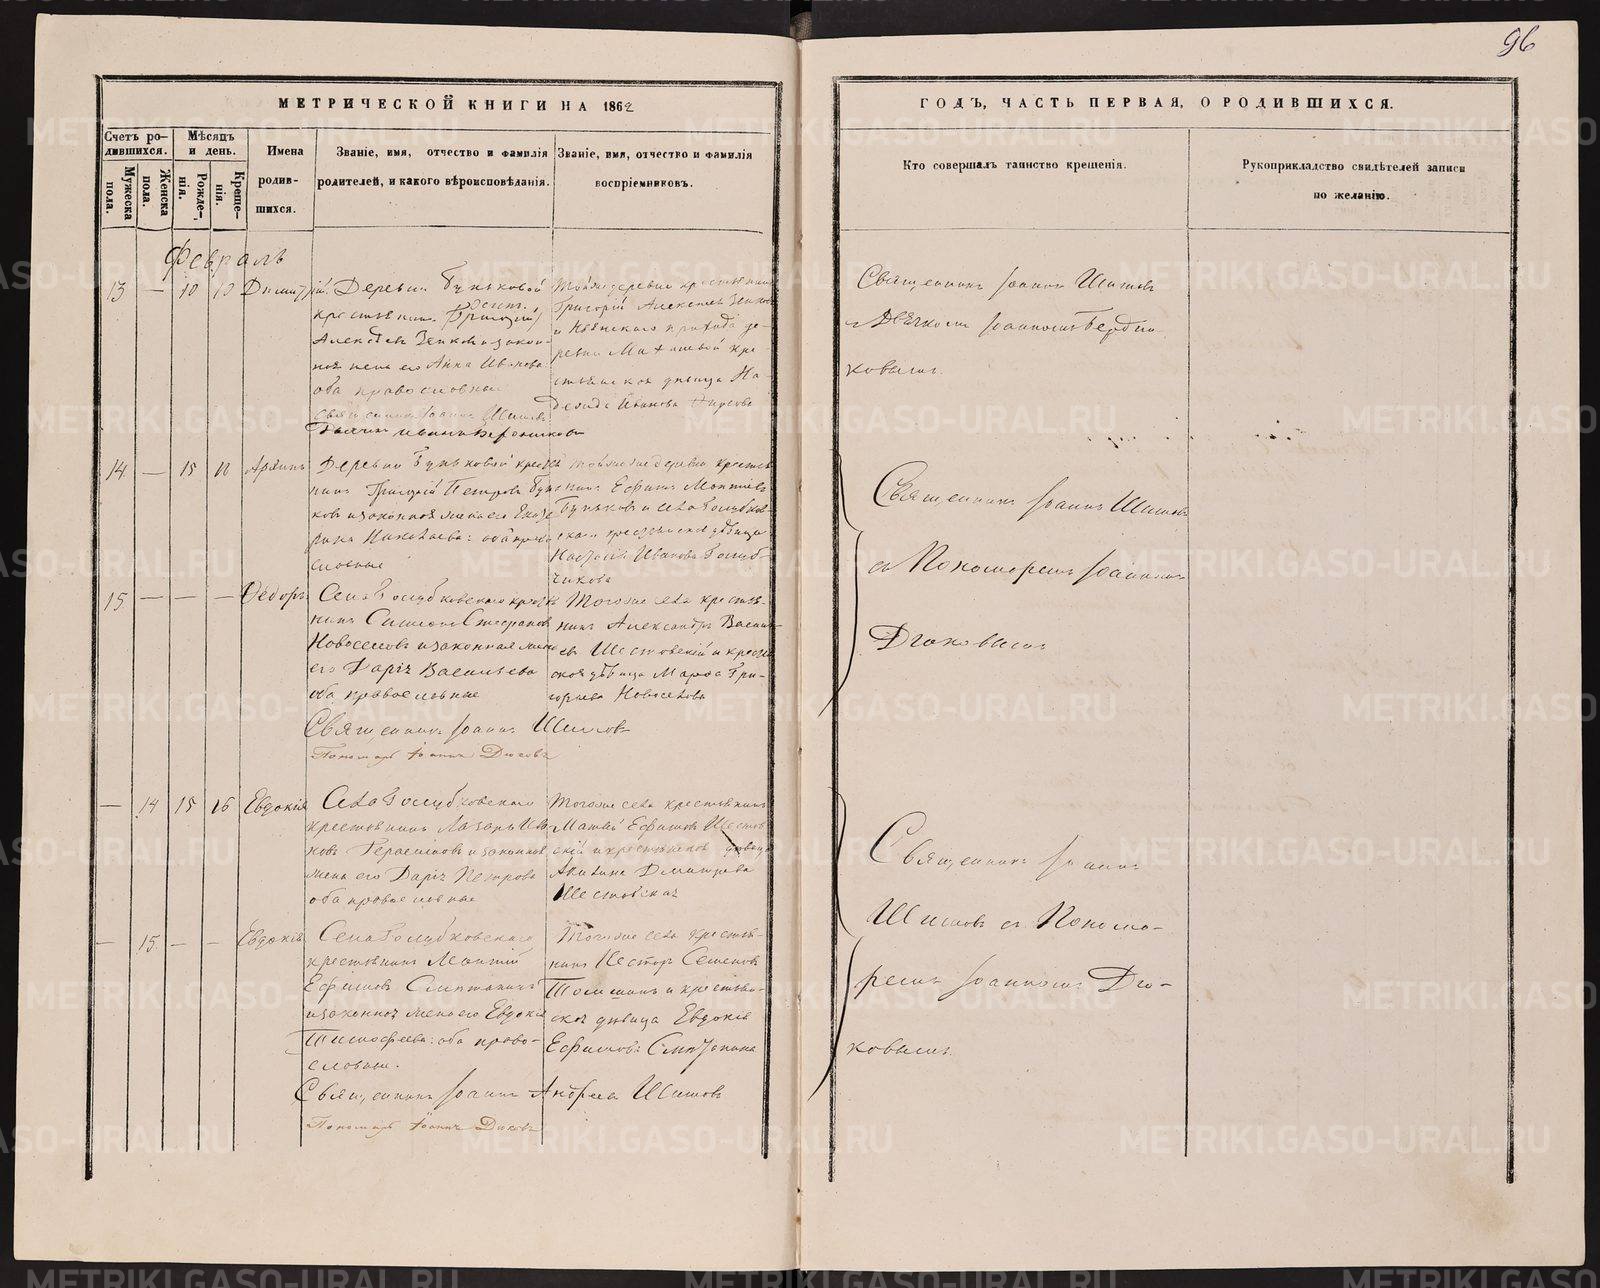 96
МЕТРИЧЕСКОЙ КНИГИ НА 1862
ГОДЪ, ЧАСТЬ ПЕРВАЯ, О РОДИВШИХСЯ.
Счетъ ро-
дившихся.
Мужеска
пола.
Женска
пола.
Мѣсяцъ
и день.
Рожде-
нія.
Креще-
нія.
Имена
родив-
шихся.
Званіе, имя, отчество и фамилія
родителей, и какого вѣроисповѣданія.
Званіе, имя, отчество и фамилія
воспріемниковъ.
Кто совершалъ таинство крещенія.
Рукоприкладство свидѣтелей записи
по желанію.
Февраль
13 — 10 10 Димитрій.
Деревни Буньковой
крестьянинъ (Григорій)
Алексѣевъ и закон-
ная жена его Анна Иванова
оба православные
Священникъ Іоаннъ Шишовъ
Дьячокъ Иванъ
Тойже деревни крестьянинъ
Григорій Алексѣевъ
и прихода де-
ревни кре-
стьянская дѣвица На
дежда Иванова
Священникъ Іоаннъ Шишовъ
съ Дьячкомъ Іоанномъ Бердни
ковымъ.
14 — 15 18
Деревни Буньковой крестья
нинъ Григорій Петровъ Бунь
ковъ и законная жена его Екате
рина Николаева: оба право
славные
Тойже деревни крестья
нинъ Ефимъ
Буньковъ и села Голубков
скаго крестьянская дѣвица
Настасія Иванова Голуб
чикова
15 — — — Ѳедоръ
Села Голубковскаго крестья
нинъ Симеонъ Стефановъ
Новоселовъ и законная жена
его Дарія Васильева
оба православные
Священникъ Іоаннъ Шишовъ
Пономарь Іоаннъ Дюковъ
Тогоже села крестья-
нинъ Александръ Василь-
евъ Шестовскій и крестьян
ская дѣвица Марѳа Гри-
горьева Новоселова
Священникъ Іоаннъ Шишовъ
съ Пономаремъ Іоанномъ
Дюковымъ
— 14 15 16 Евдокія
Села Голубковскаго
крестьянинъ Лазарь Ива
новъ Герасимовъ и законная
жена его Дарія Петрова
оба православные
Тогоже села крестьянинъ
Матвѣй Ефимовъ Шестов
скій и крестьянская дѣвица
Акилина Дмитрева
Шестовская
Священникъ Іоаннъ
Шишовъ съ Понома-
ремъ Іоанномъ Дю-
ковымъ.
— 15. — — Евдокія
Села Голубковскаго
крестьянинъ
Ефимовъ
и законная жена его Евдокія
Тимофеева: оба право-
славные.
Священникъ Іоаннъ Андреевъ Шишовъ
Пономарь Іоаннъ Дюковъ
Тогоже села крестья-
нинъ Несторъ Семеновъ
и крестьян-
ская дѣвица Евдокія
Ефимова